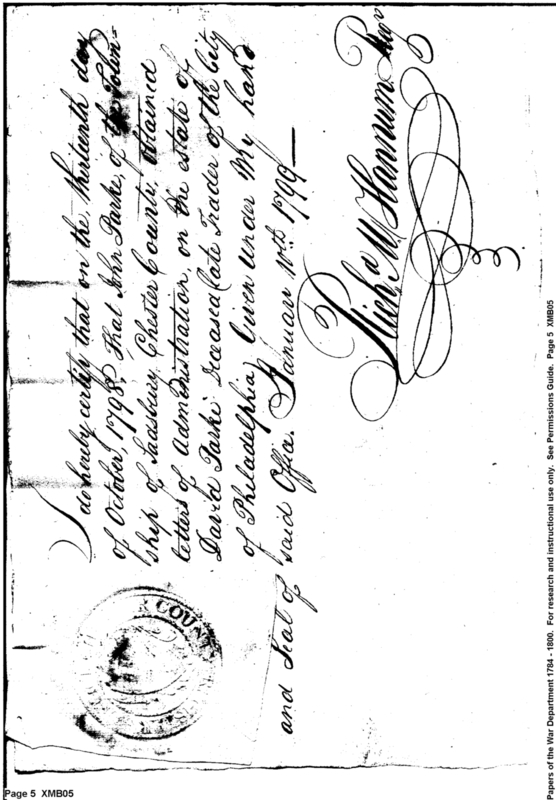 I do hereby certify that on the thirteenth day
of October 1798. That John Parke, of the Town-
ship of Sadsbury Chester County, obtained
letters of Administration, on the estate of
David Parke deceased late Trader of the City
of Philadelphia, Given under My hand
and Seal of said Office. January 10th 1799—
Hannum
COUNT
Page 5 XMB05
Papers of the War Department 1784 - 1800. For research and instructional use only. See Permissions Guide. Page 5 XMB05